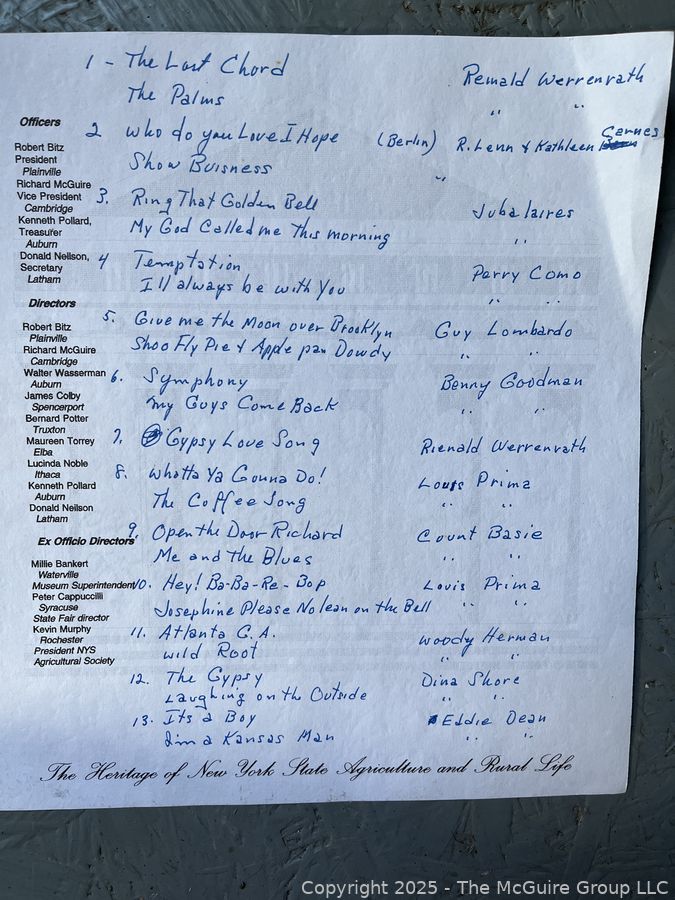 1 - The Lost Chord Remald Werrenrath
The Palms " "
2 Who do you Love I Hope (Berlin) R. Lenn & Kathleen Carnes
Show Buisness "
3. Ring That Golden Bell Jubalaires
My God Called me This morning " "
4 Temptation Perry Como
I'll always be with You " "
5. Give me the Moon over Brooklyn Guy Lombardo
Shoo Fly Pie & Apple pan Dowdy " "
6. Symphony Benny Goodman
My Guys Come Back " "
7. Gypsy Love Song Rienald Werrenrath
8. Whatta Ya Gonna Do! Louis Prima
The Coffee Song " "
9. Open the Door Richard Count Basie
Me and the Blues " "
10. Hey! Ba-Ba-Re-Bop Louis Prima
Josephine Please No lean on the Bell " "
11. Atlanta G.A. Woody Herman
Wild Root " "
12. The Gypsy Dina Shore
Laughing on the Outside " "
13. Its a Boy Eddie Dean
I'm a Kansas Man " "
Officers
Robert Bitz
President
Plainville
Richard McGuire
Vice President
Cambridge
Kenneth Pollard,
Treasurer
Auburn
Donald Neilson,
Secretary
Latham
Directors
Robert Bitz
Plainville
Richard McGuire
Cambridge
Walter Wasserman
Auburn
James Colby
Spencerport
Bernard Potter
Truxton
Maureen Torrey
Elba
Lucinda Noble
Ithaca
Kenneth Pollard
Auburn
Donald Neilson
Latham
Ex Officio Directors
Millie Bankert
Waterville
Museum Superintendent
Peter Cappuccilli
Syracuse
State Fair director
Kevin Murphy
Rochester
President NYS
Agricultural Society
The Heritage of New York State Agriculture and Rural Life
Copyright 2025 - The McGuire Group LLC